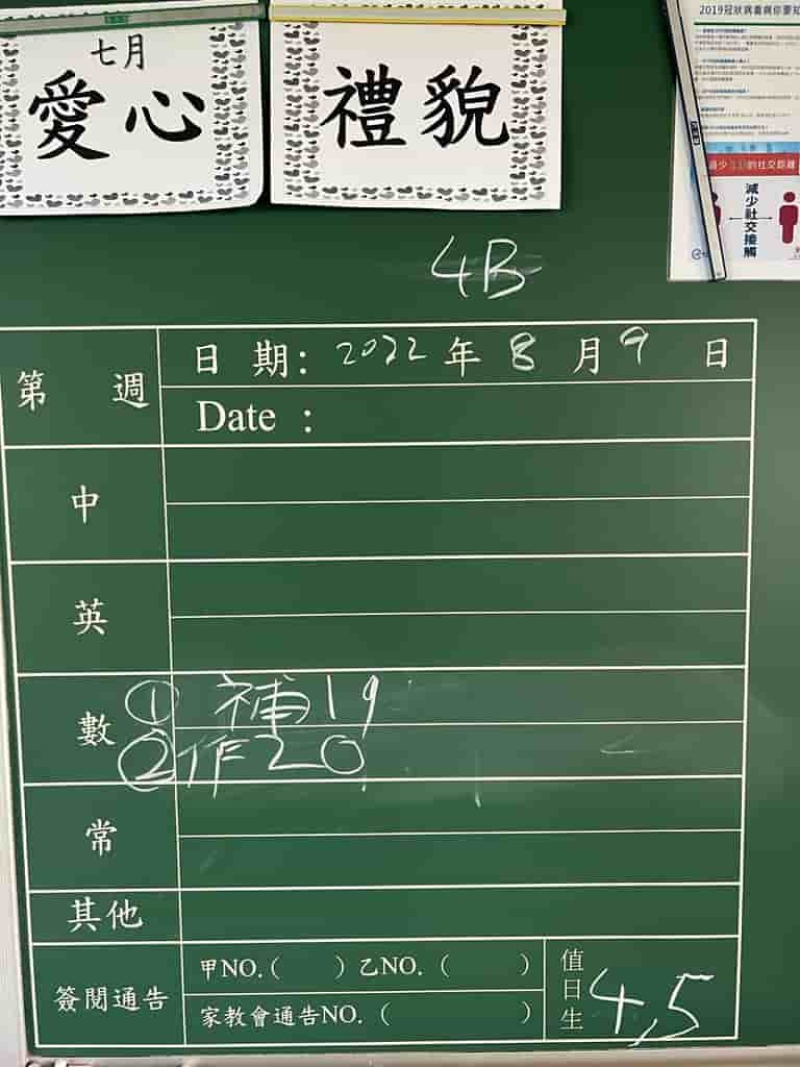 七月
愛心
禮貌
2019冠狀病毒病你要知
減少社交接觸
4B
第 週
日 期: 2022 年 8 月 9 日
Date :
中
英
數
① 補19
② 作20
常
其他
簽閱通告
甲NO.( ) 乙NO. ( )
家教會通告NO. ( )
值日生
4,5